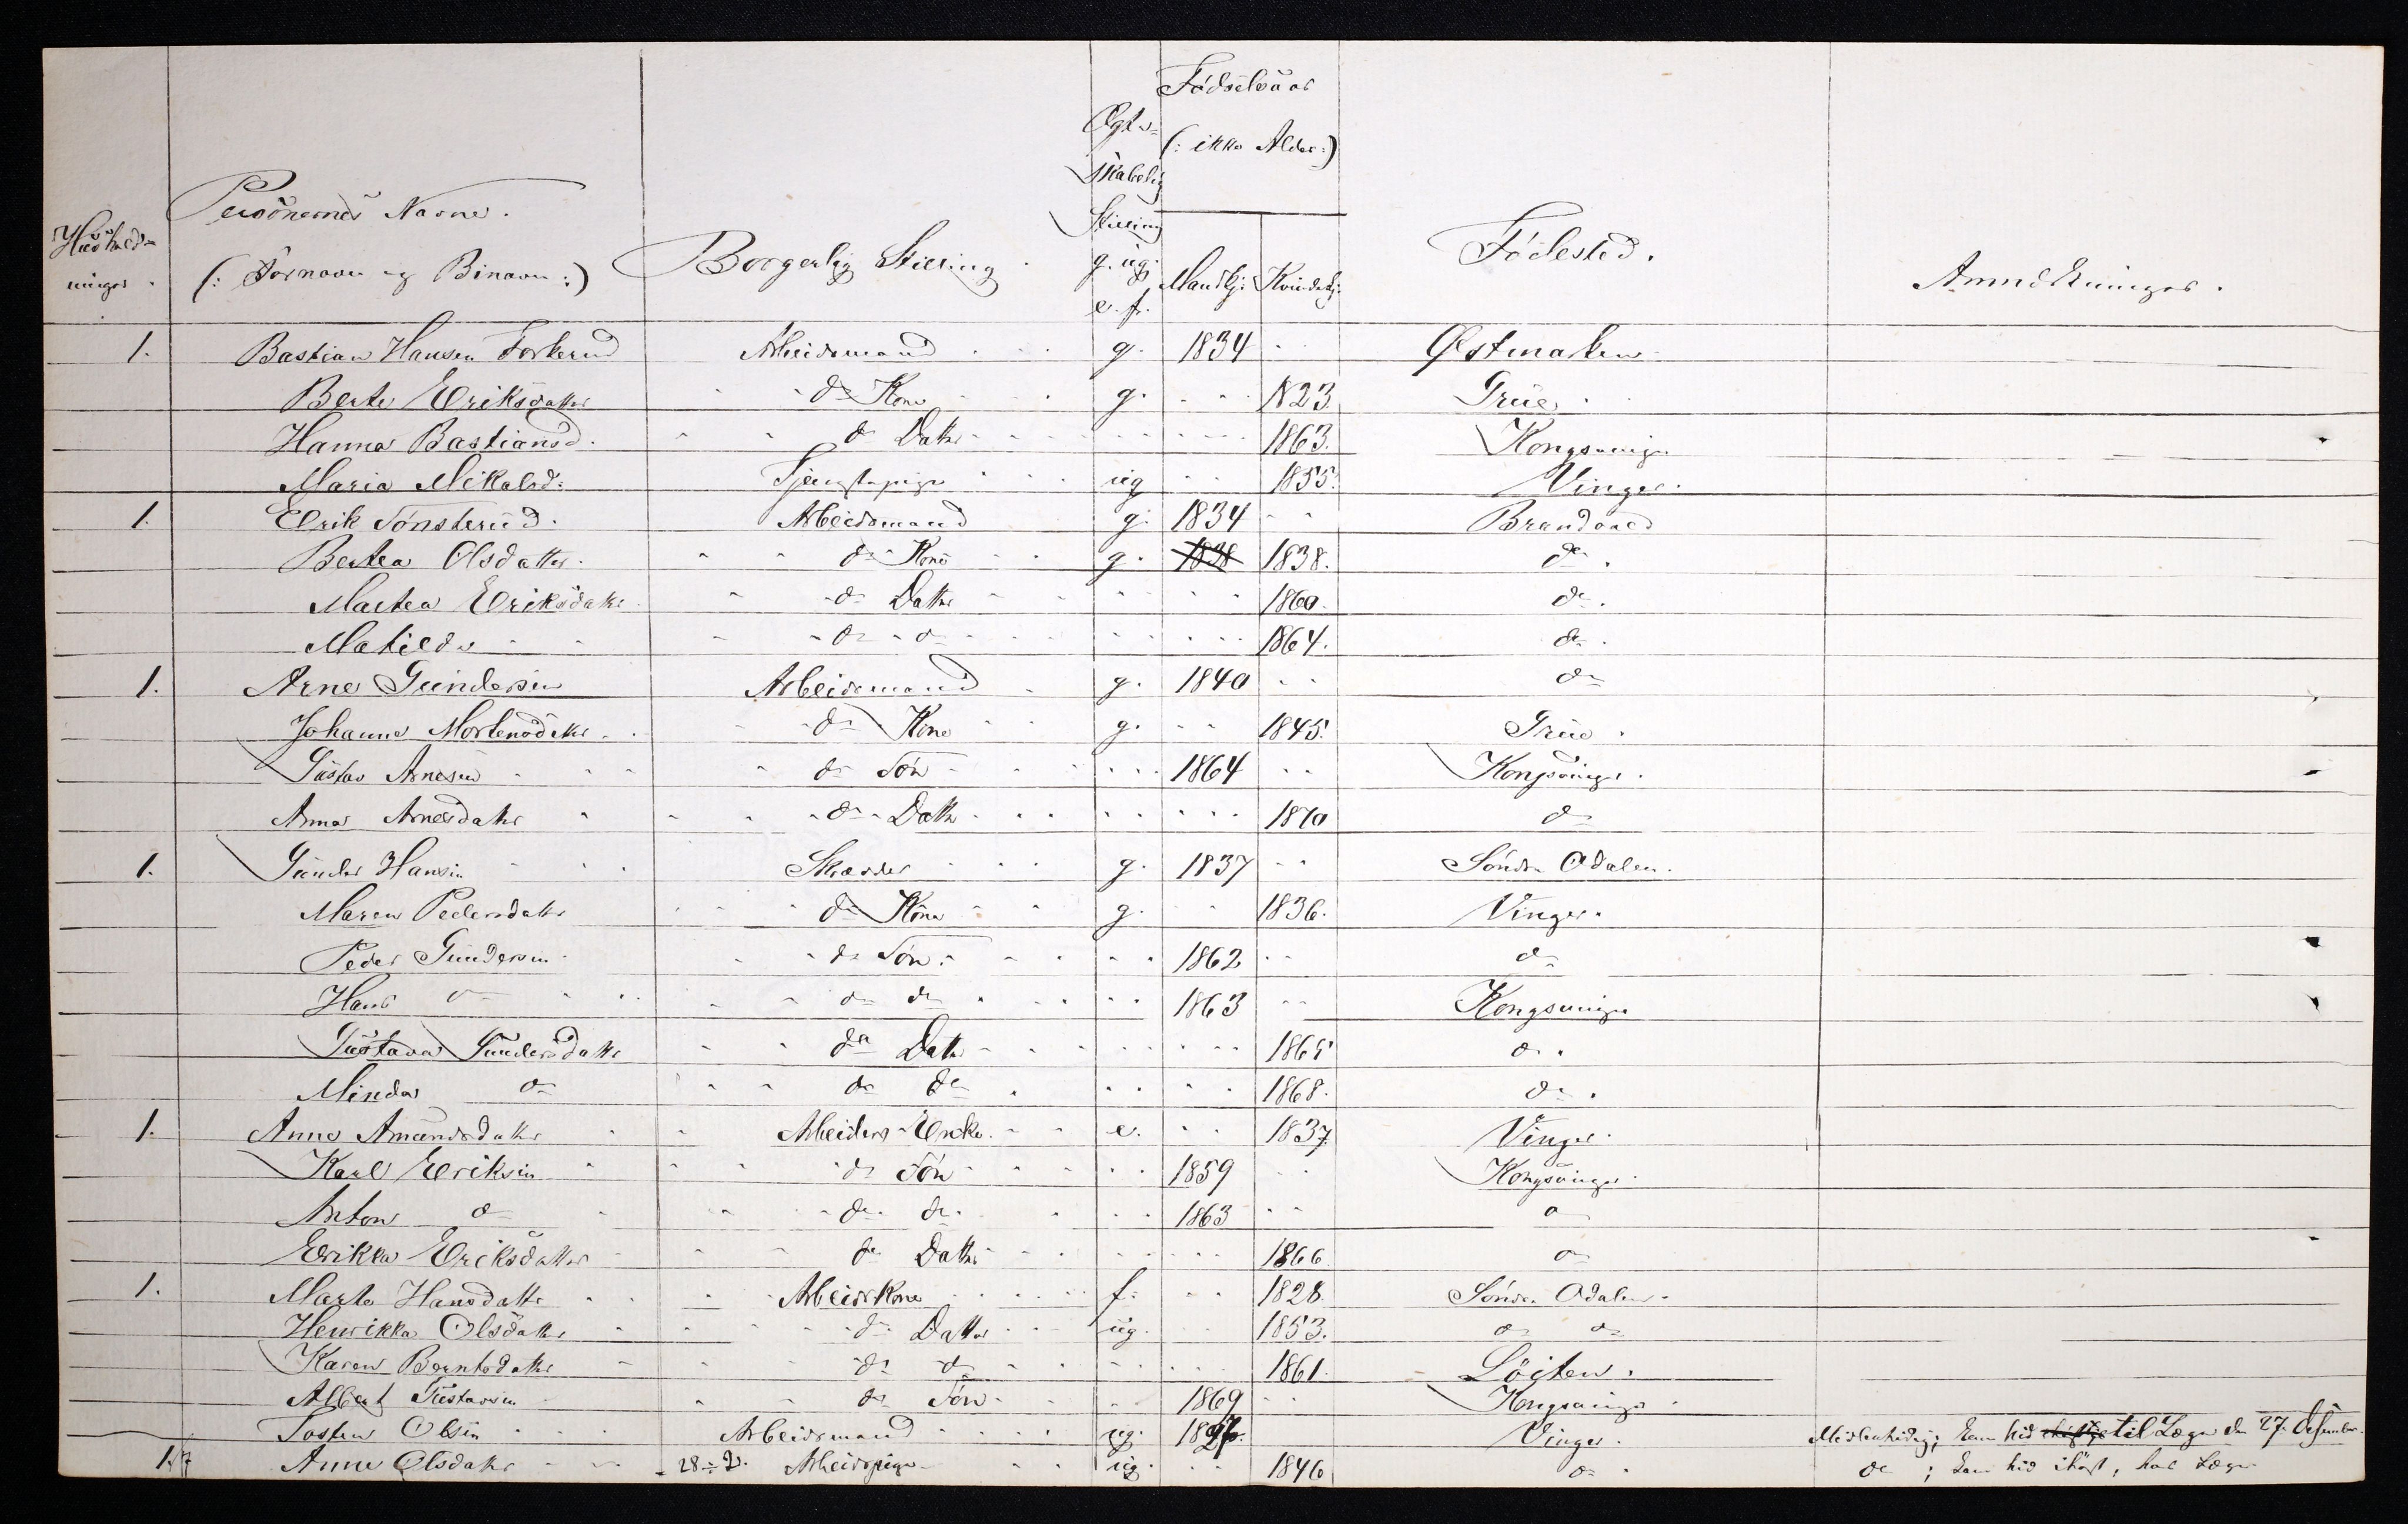 Personernes Navne.
(: Fornavn og Binavn :)
Borgerlig Stilling
Egte-
skabelig
Stilling
g. ug.
e. f.
Födselsaar
(: ikke Alder :)
Mandkj. Kvindekj.
Födested.
Anmærkninger.
1. Bastian Hansen Arbeidsmand g. 1834 Østmarken
Berte Eriksdatter do Kone g. 1823. Grue
Hanna Bastiansd. do Datter 1863. Kongsvinger
Maria Mikalsd: Tjenestepige ug 1855. Vinger.
1. Erik Sönsterud. Arbeidsmand g. 1834 Brandvold
Bertea Olsdatter. do Kone g. 1838 1838. do.
Martea Eriksdatter do Datter 1860. do.
Matilde do do 1864. do.
1. Arne Gundersen Arbeidsmand g. 1840 do
Johanne Mortensdatter do Kone g. 1845. Grue.
Gustav Arnesen do Sön 1864 Kongsvinger.
Anna Arnesdatter do Datter 1870 do
1. Gunder Hansen Skrædder g. 1837 Söndre Odalen.
Maren Pedersdatter do Kone g. 1836. Vinger.
Peder Gundersen do Sön. 1862 do
Hans do do do 1863 Kongsvinger
Gustava Gundersdatter do Datter 1865 do.
Minda do do do 1868. do.
1. Anne Amundsdatter Arbeiders Enke. e. 1837. Vinger.
Karl Eriksen do Sön 1859 Kongsvinger.
Anton do do do. 1863 do
Erikka Eriksdatter do Datter 1866 do
1. Marte Hansdatter Arbeidskone f. 1828. Söndre Odalen.
Henrikka Olsdatter do Datter ug. 1853. do do
Karen Berntsdatter do do 1861. Löiten.
Albert Gustavsen do Sön 1869 Kongsvinger.
Tosten Olsen Arbeidsmand ug. Vinger. Midlertidig; kom hid til Læge den 27. Desember.
Anne Olsdatter 28-2. Arbeidspige ug. 1846 do. do ; kom hid ihöst, har